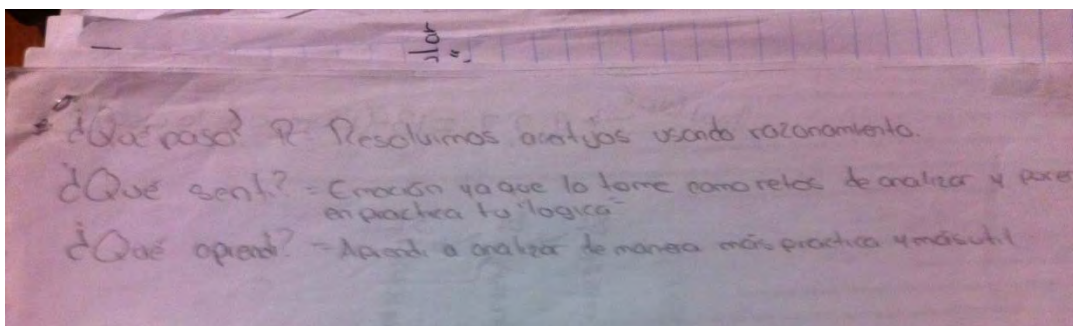 lor
¿Qué paso? R= Resolvimos acertijos usando razonamiento.
¿Qué sentí? = Emoción ya que lo tome como retos de analizar y poner
en practica tu "logica"
¿Qué aprendí? = Aprendi a analizar de manera más practica y más util